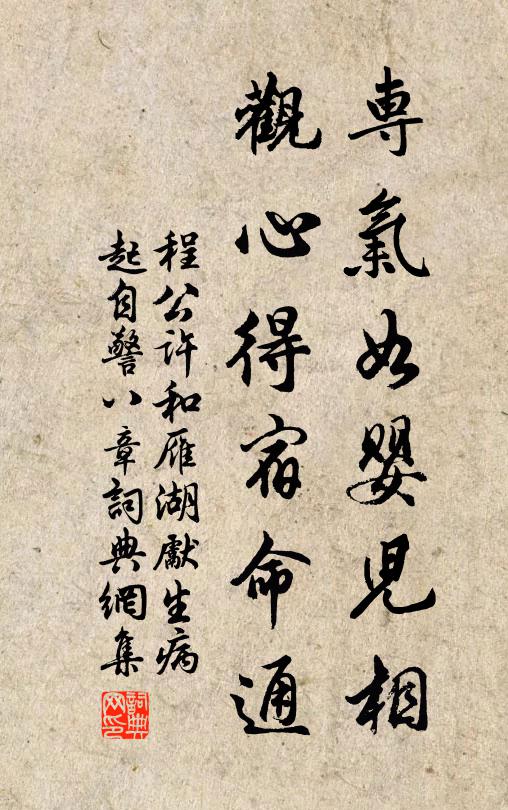 専氣如嬰児相
觀心得宿命通
程公许和雁湖獻生病
起自警八章詞典網集
詞典
网印